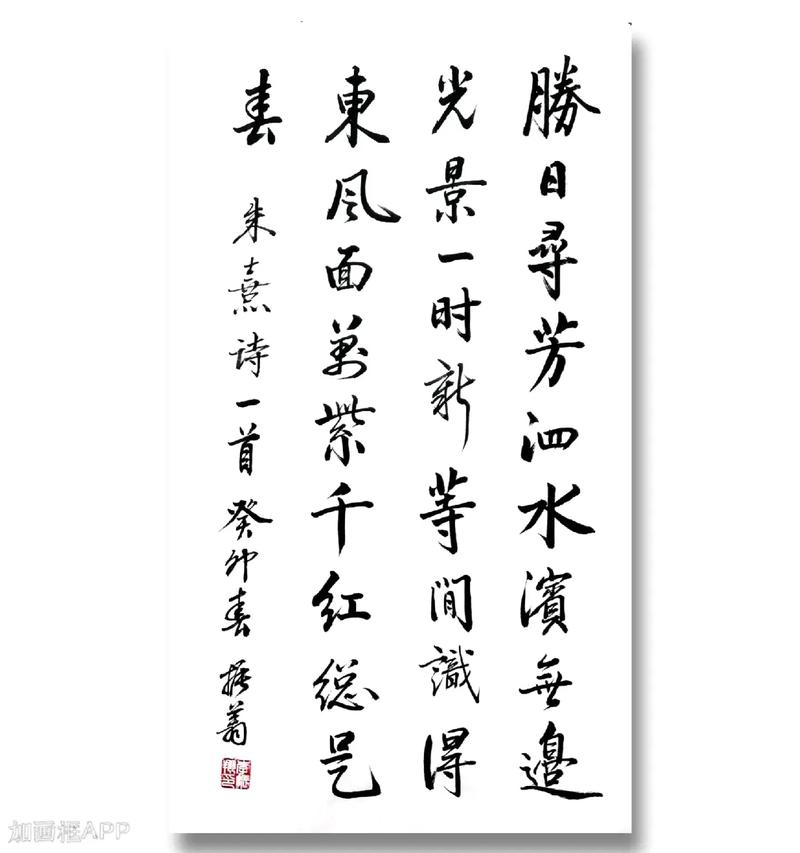 勝日尋芳泗水濱無邊
光景一时新等閒識得
東風面萬紫千红総是
春 朱熹诗一首 癸卯春 振翁
加画框APP